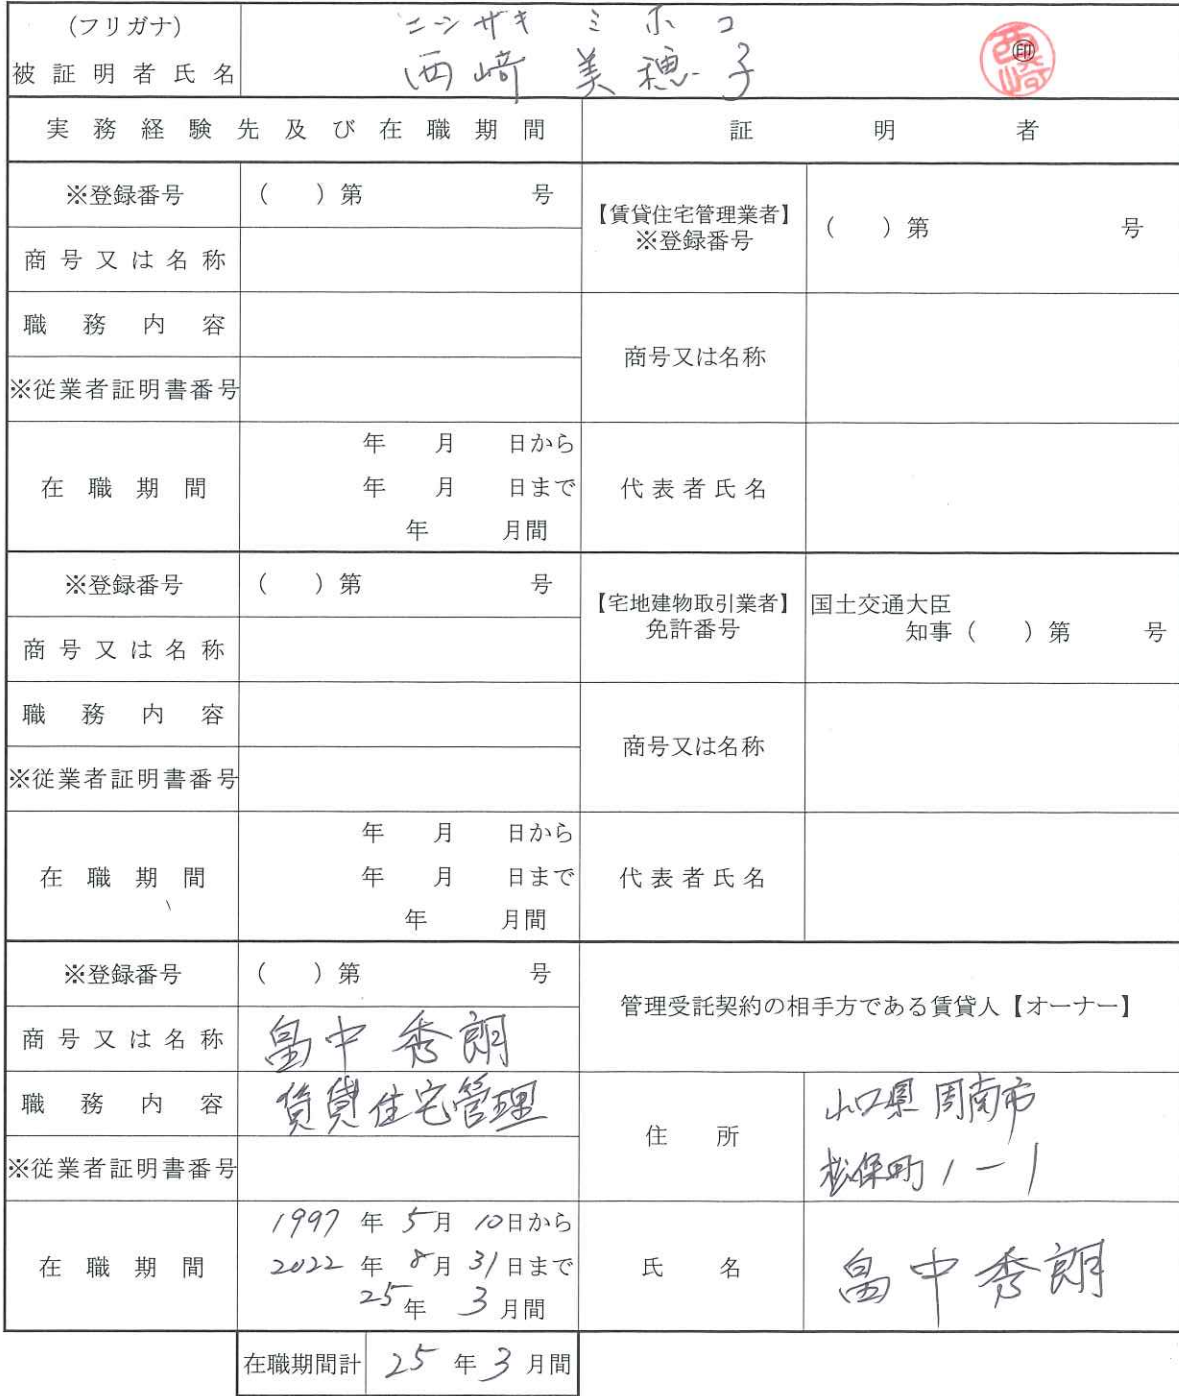 (フリガナ) ニシザキ ミホコ
被証明者氏名 西﨑 美穂子 ㊞ 西崎
実務経験先及び在職期間 証明者
※登録番号 ( )第 号
【賃貸住宅管理業者】
※登録番号 ( )第 号
商号又は名称
職務内容
商号又は名称
※従業者証明書番号
在職期間
年 月 日から
年 月 日まで
年 月間
代表者氏名
※登録番号 ( )第 号
【宅地建物取引業者】
免許番号
国土交通大臣
知事( )第 号
商号又は名称
職務内容
商号又は名称
※従業者証明書番号
在職期間
年 月 日から
年 月 日まで
年 月間
代表者氏名
※登録番号 ( )第 号
管理受託契約の相手方である賃貸人【オーナー】
商号又は名称 畠中 秀朗
職務内容 賃貸住宅管理
※従業者証明書番号
住所
山口県周南市
松保町1-1
在職期間
1997年5月10日から
2022年8月31日まで
25年3月間
氏名 畠中秀朗
在職期間計 25年3月間